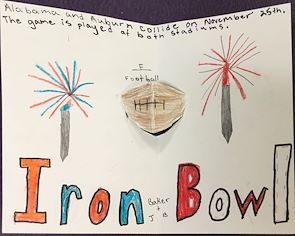 Alabama and Auburn collide on November 25th.
The game is played at both stadiums.
F
Football
Iron Bowl
Baker
+
J B